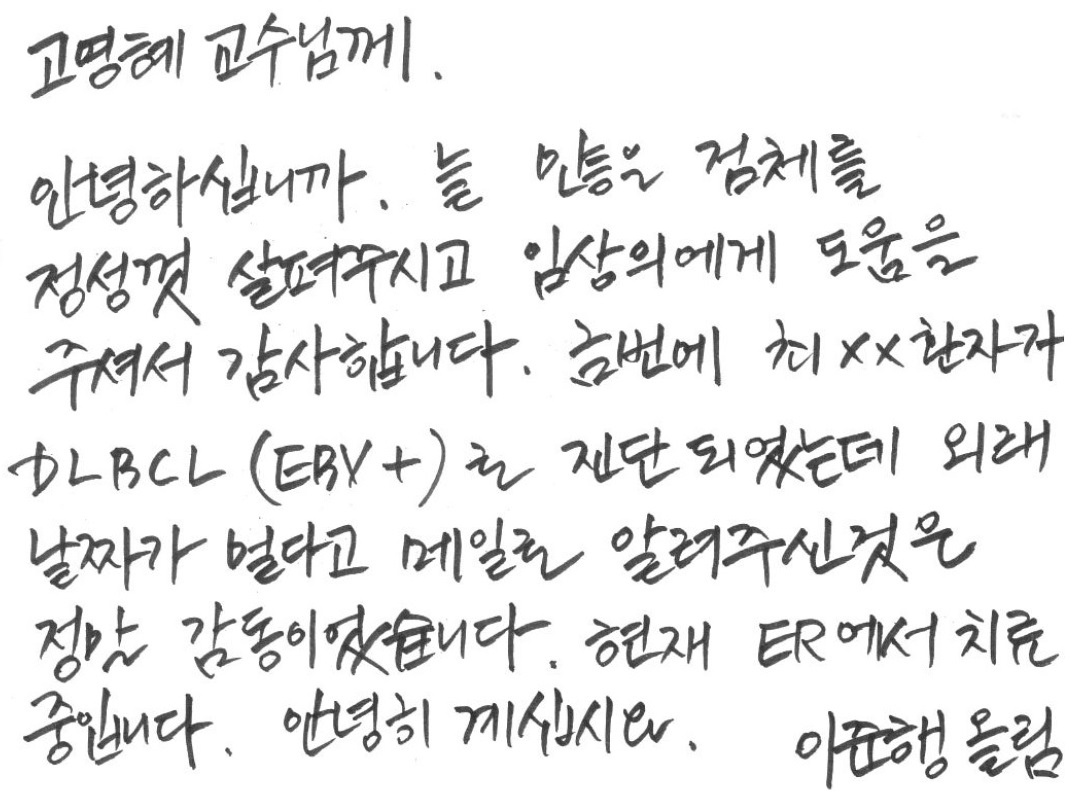 고영혜 교수님께.
안녕하십니까. 늘 많은 검체를
정성껏 살펴주시고 임상의에게 도움을
주셔서 감사합니다. 금번에 최XX환자가
DLBCL (EBV+)로 진단되었는데 외래
날짜가 멀다고 메일로 알려주신것은
정말 감동이었습니다. 현재 ER에서 치료
중입니다. 안녕히 계십시요. 이준행 올림